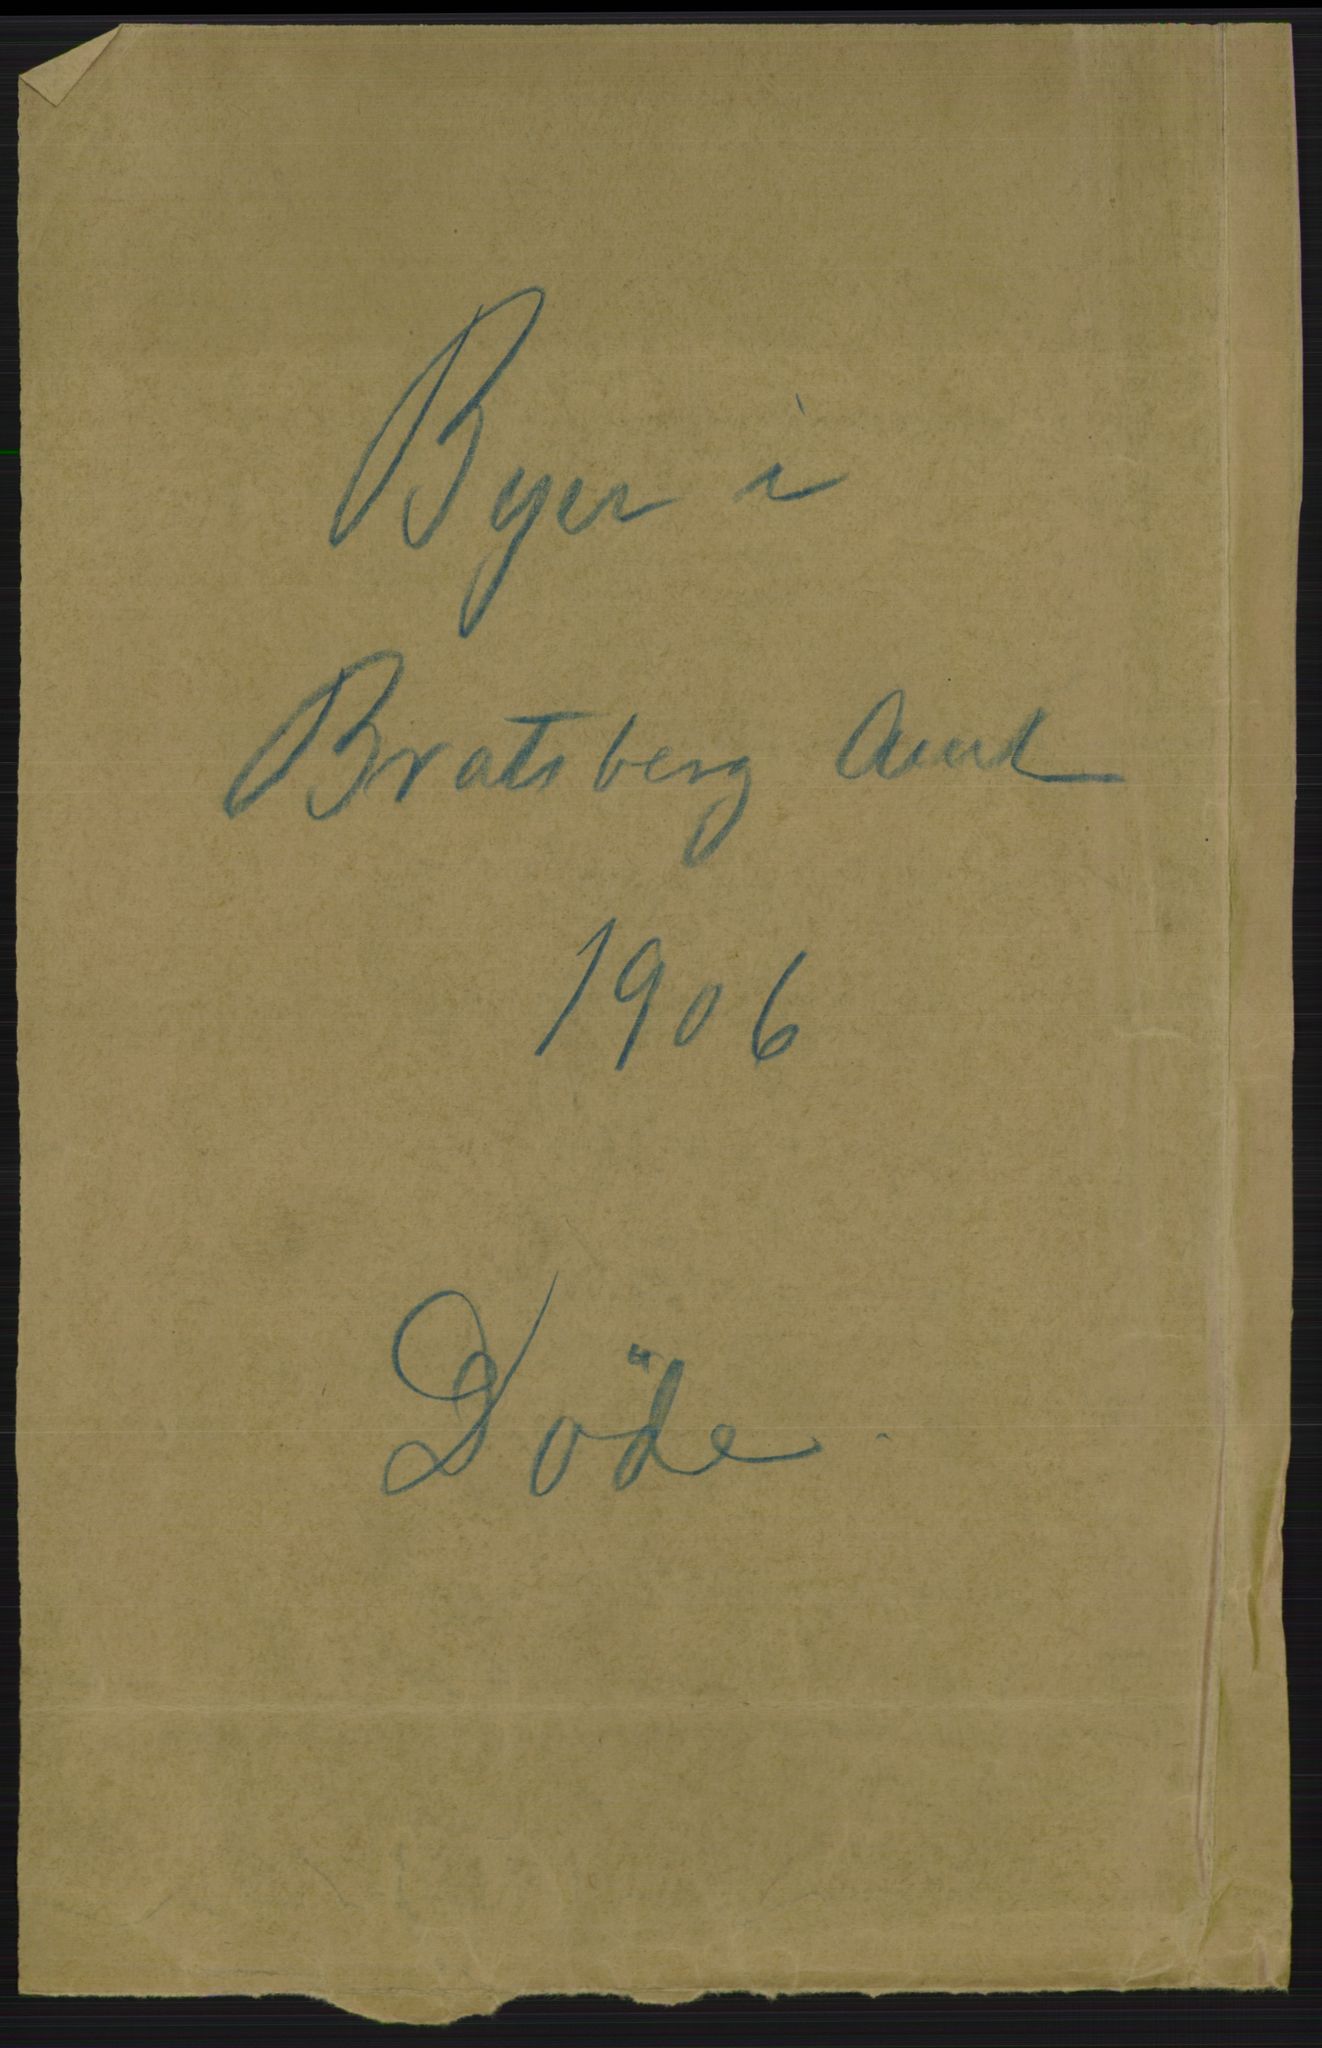 Byer i
Bratsberg Amt
1906
Döde.